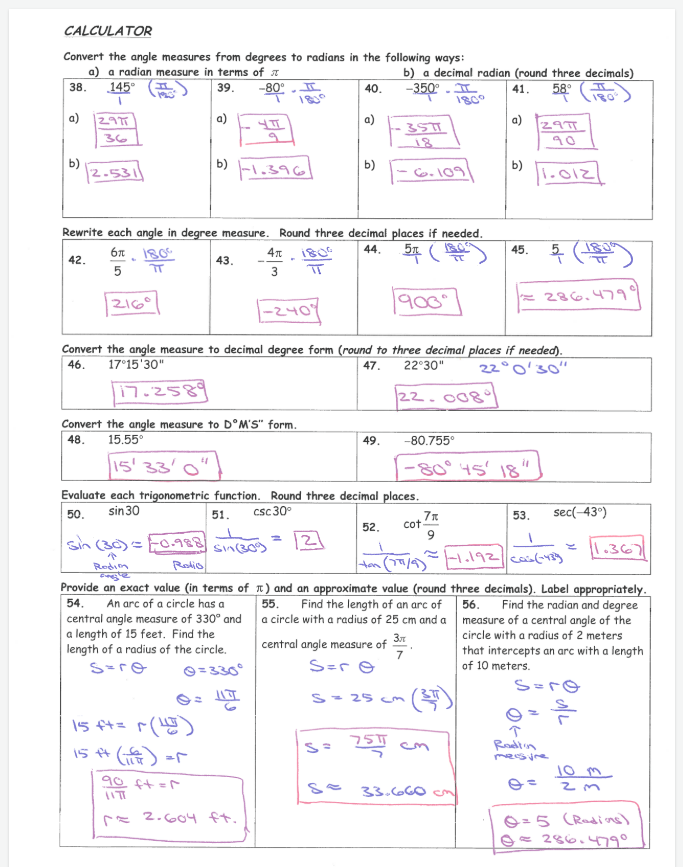 CALCULATOR
Convert the angle measures from degrees to radians in the following ways:
a) a radian measure in terms of π b) a decimal radian (round three decimals)
38. 145°/1 (π/180°) 39. -80°/1 · π/180° 40. -350°/1 · π/180° 41. 58°/1 (π/180°)
a) 29π/36 a) -4π/9 a) -35π/18 a) 29π/90
b) 2.531 b) -1.396 b) -6.109 b) 1.012
Rewrite each angle in degree measure. Round three decimal places if needed.
42. 6π/5 · 180°/π 43. -4π/3 · 180°/π 44. 5π/1 (180°/π) 45. 5/1 (180°/π)
216° -240° 900° ≈ 286.479°
Convert the angle measure to decimal degree form (round to three decimal places if needed).
46. 17°15'30" 47. 22°30" 22°0'30"
17.258° 22.008°
Convert the angle measure to D°M'S" form.
48. 15.55° 49. -80.755°
15' 33' 0" -80° 45' 18"
Evaluate each trigonometric function. Round three decimal places.
50. sin30 51. csc30° 52. cot 7π/9 53. sec(-43°)
sin (30) = -0.988 1/sin(30°) = 2 1/tan (7π/9) ≈ -1.192 1/cos(-43°) ≈ 1.367
Radian angle Ratio
Provide an exact value (in terms of π) and an approximate value (round three decimals). Label appropriately.
54. An arc of a circle has a
central angle measure of 330° and
a length of 15 feet. Find the
length of a radius of the circle.
S=rθ θ=330°
θ= 11π/6
15 ft= r(11π/6)
15 ft (6/11π) =r
90/11π ft =r
r≈ 2.604 ft.
55. Find the length of an arc of
a circle with a radius of 25 cm and a
central angle measure of 3π/7.
S=r θ
S= 25 cm (3π/7)
S= 75π/7 cm
S≈ 33.660 cm
56. Find the radian and degree
measure of a central angle of the
circle with a radius of 2 meters
that intercepts an arc with a length
of 10 meters.
S=rθ
θ= S/r
Radian
measure
θ= 10 m/2 m
θ=5 (Radians)
θ≈ 286.479°